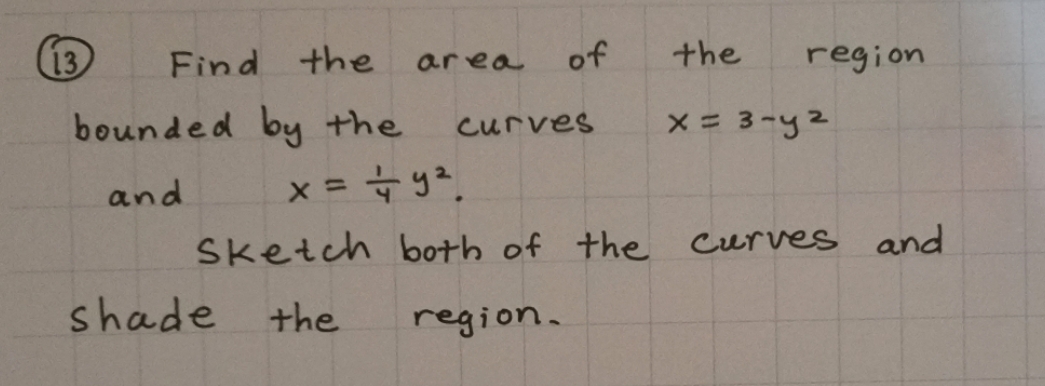 ⑬ Find the area of the region
bounded by the curves x = 3-y²
and x = 1/4 y².
Sketch both of the curves and
shade the region.